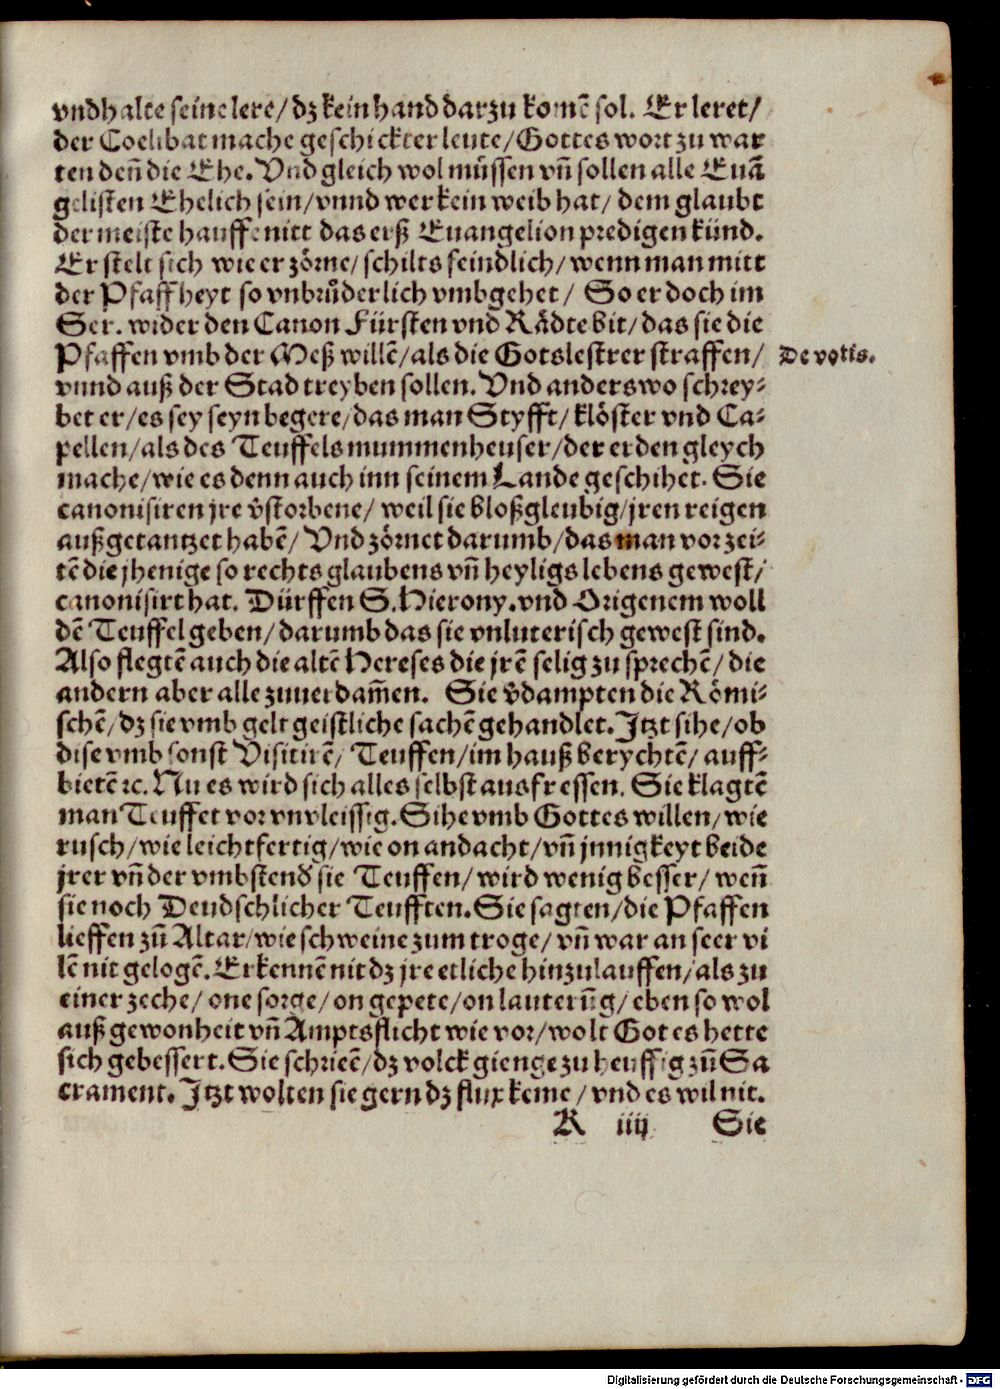 vnd halte seine lere/ dz kein hand darzu komē sol. Er leret/
der Coelibat mache geschickter leute/ Gottes wort zu war
ten deñ die Ehe. Vnd gleich wol müssen vñ sollen alle Euā
gelisten Ehelich sein/ vnnd wer kein weib hat/ dem glaubt
der meiste hauffe nitt das erß Euangelion predigen künd.
Er stelt sich wie er zörne/ schilts feindlich/ wenn man mitt
der Pfaffheyt so vnbrůderlich vmbgehet/ So er doch im
Ser. wider den Canon Fürsten vnd Rädte bit/ das sie die
Pfaffen vmb der Meß willē/ als die Gotslestrer straffen/
De votis.
vnnd auß der Stad treyben sollen. Vnd anderswo schrey-
bet er/ es sey seyn begere/ das man Styfft/ klöster vnd Ca-
pellen/ als des Teuffels mummenheuser/ der erden gleych
mache/ wie es denn auch inn seinem Lande geschihet. Sie
canonisiren jre v̄storbene/ weil sie bloßgleubig/ jren reigen
außgetantzet habē/ Vnd zörnet darumb/ das man vor zei-
tē die jhenige so rechts glaubens vñ heyligs lebens gewest/
canonisirt hat. Dürffen S. Hierony. vnd Origenem woll
dē Teuffel geben/ darumb das sie vnluterisch gewest sind.
Also flegtē auch die altē Hereses die jrē selig zu sprechē/ die
andern aber alle zuuerdam̄en. Sie v̄dampten die Römi-
schē/ dz sie vmb gelt geistliche sachē gehandlet. Jtzt sihe/ ob
dise vmb sonst Visitirē/ Teuffen/ im hauß berychtē/ auff-
bietē ꝛc. Nu es wird sich alles selbst ausfressen. Sie klagtē
man Teuffet vor vnvleissig. Sihe vmb Gottes willen/ wie
rusch/ wie leichtfertig/ wie on andacht/ vñ jnnigkeyt beide
jrer vñ der vmbstend sie Teuffen/ wird wenig besser/ weñ
sie noch Deudschlicher Teufften. Sie sagten/ die Pfaffen
lieffen zū Altar/ wie schweine zum troge/ vñ war an seer vi
lē nit gelogē. Erkennē nit dz jre etliche hinzulauffen/ als zu
einer zeche/ one sorge/ on gepete/ on lauterūg/ eben so wol
auß gewonheit vñ Amptsflicht wie vor/ wolt Got es hette
sich gebessert. Sie schrieē/ dz volck gienge zu heuffig zū Sa
crament. Jtzt wolten sie gern dz flux keme/ vnd es wil nit.
K iiij Sie
Digitalisierung gefördert durch die Deutsche Forschungsgemeinschaft - DFG